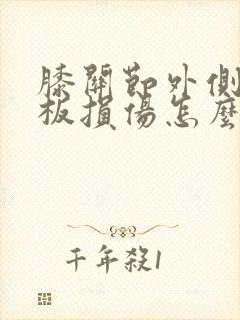 膝關節外側
板損傷怎麼
千年殺1